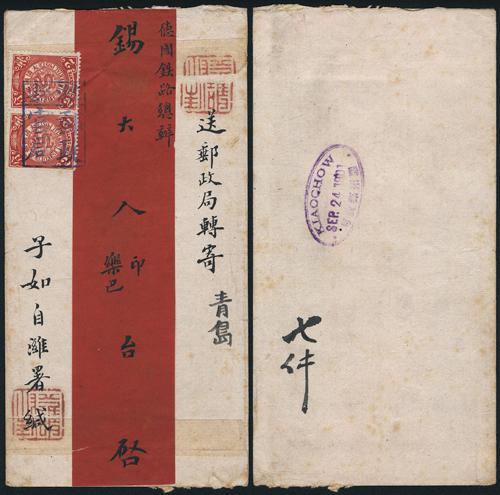 送郵政局轉寄
青島
德國鉄路總辦
錫大人印樂巴台啓
子如自濰署緘
KIAOCHOW
SEP 24 1901
七件